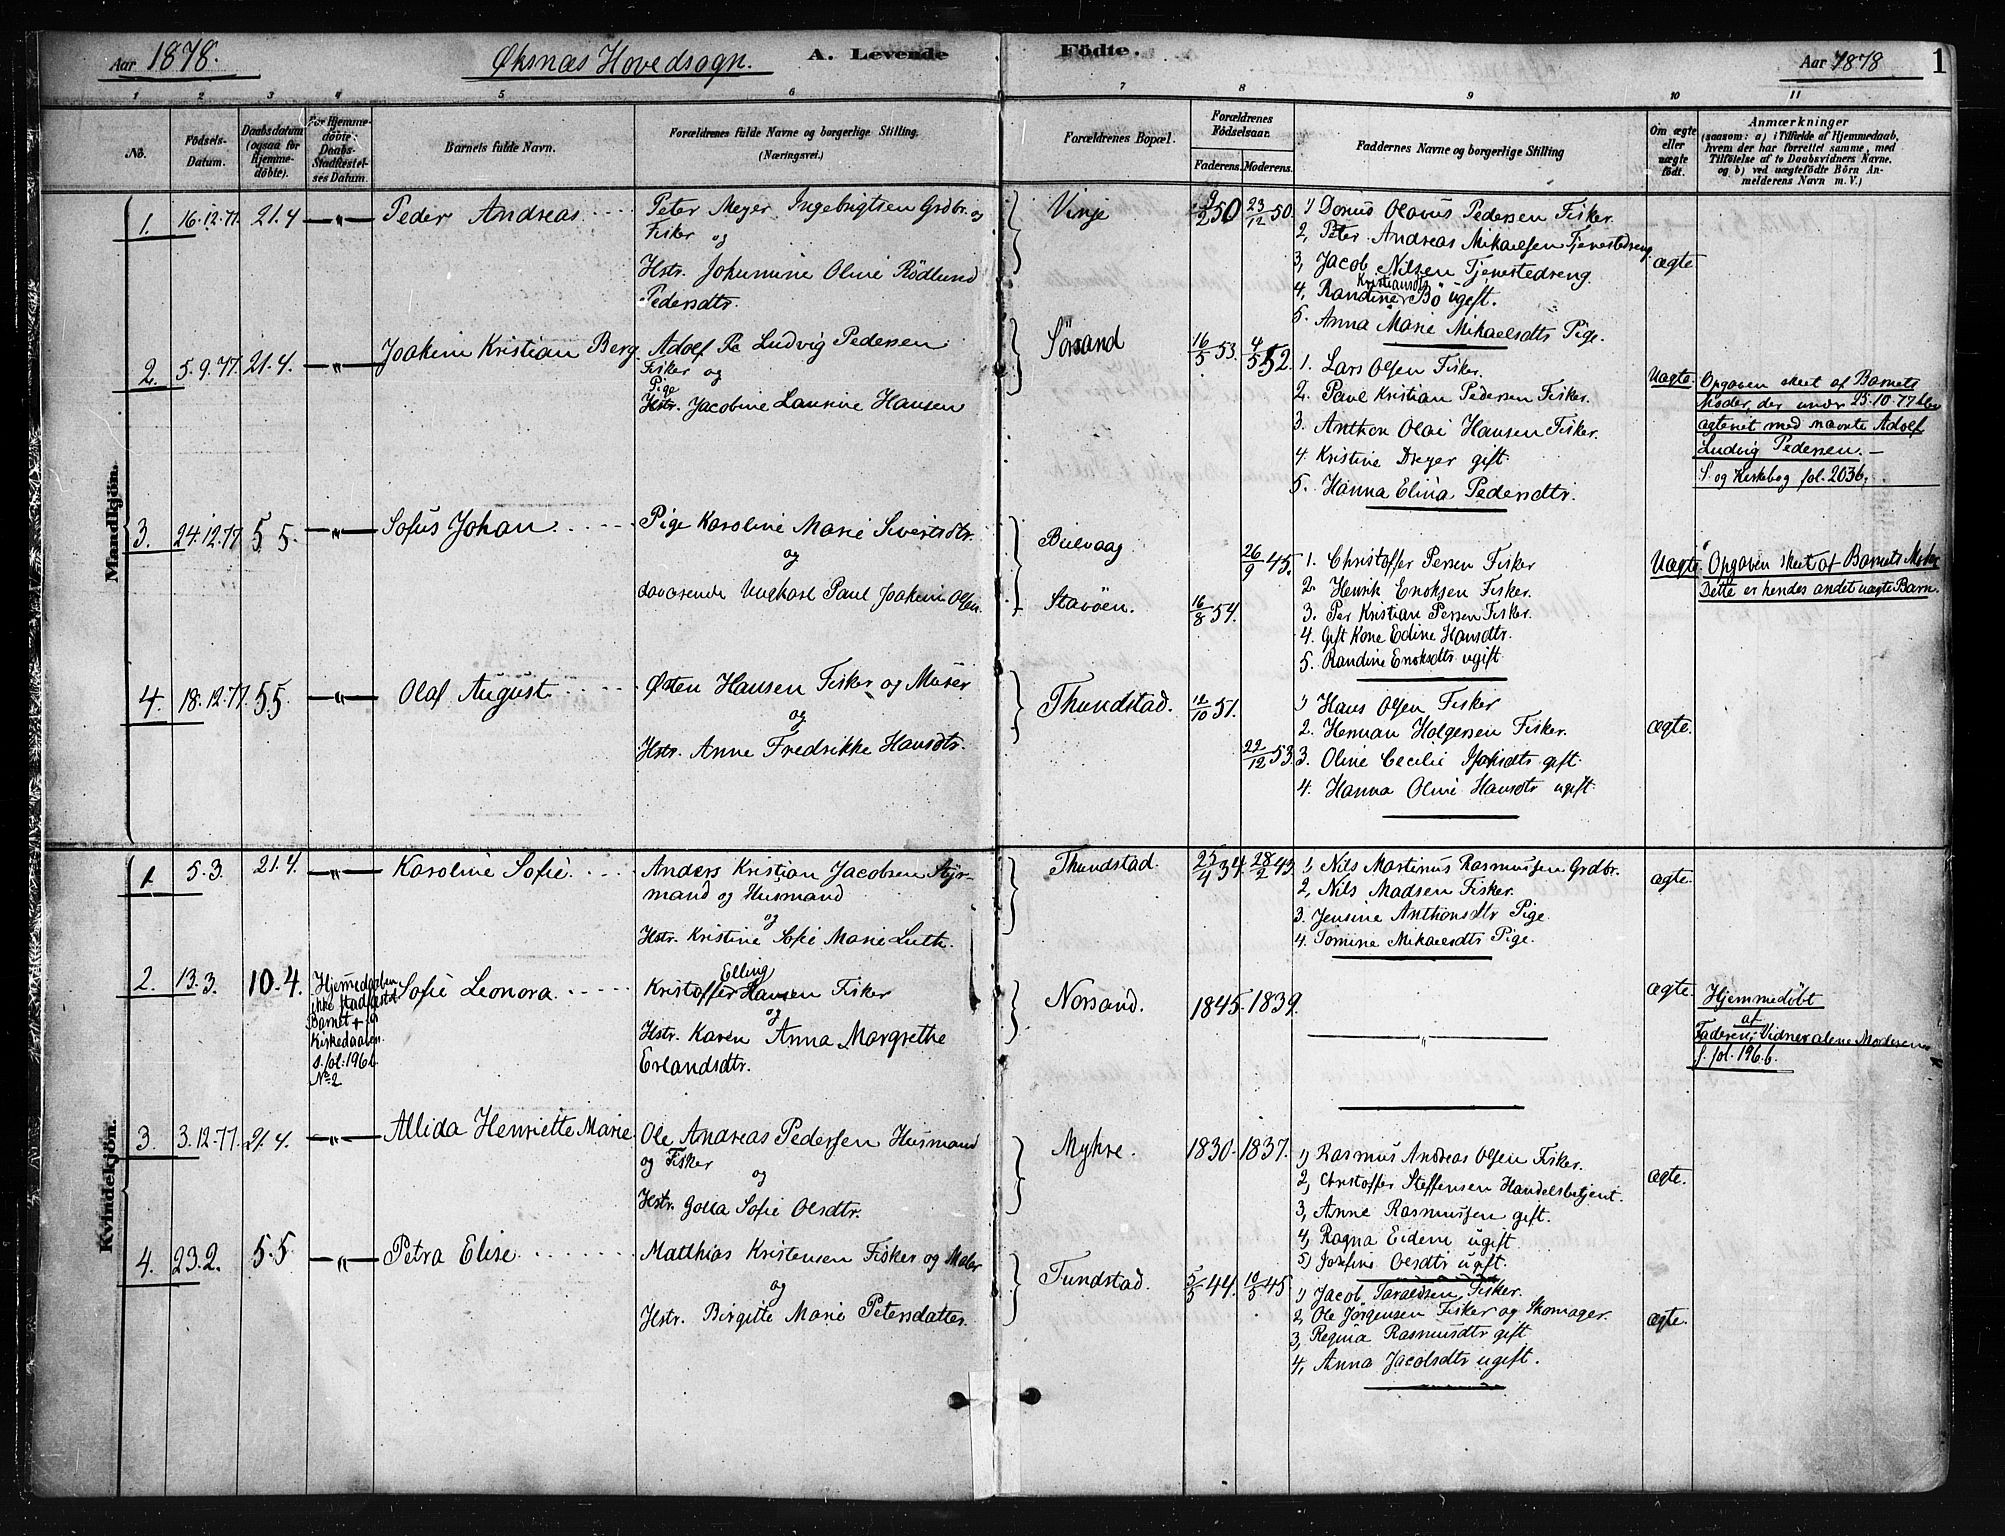 Aar 1878. Øksnæs Hovedsogn. A. Levende Födte. Aar 1878 1
1 2 3 4 5 6 7 8 9 10 11
No.
Födsels-Datum.
Daabsdatum (ogsaa for Hjemmedöbte).
For Hjemmedöbte: Daabs-Stadfæstelses Datum.
Barnets fulde Navn.
Forældrenes fulde Navne og borgerlige Stilling.
(Næringsvei.)
Forældrenes Bopæl.
Forældrenes Födselsaar.
Faderens. Moderens.
Faddernes Navne og borgerlige Stilling
Om ægte eller uægte födt.
Anmærkninger
(saasom: a) i Tilfælde af Hjemmedaab,
hvem der har forrettet samme, med
Tilföielse af to Daabsvidners Navne,
og b) ved uægtefödte Börn An-
melderens Navn m. V.)
Mandkjön.
1. 16.12.77. 21.4 —"— Peder Andreas
Peter Meyer Ingebrigtsen Grdbr. og
Fisker og
Hstr. Johannine Oline Rödlund
Pedersdtr.
Vinje
9/2 50 23/12 50.
1) Donius Olavus Pedersen Fisker.
2, Peter Andreas Mikaelsen Tjenestedreng
3, Jacob Nilsen Tjenestedreng
4, Randine Kristiansdtr Bö ugift.
5. Anna Marie Mikaelsdtr Pige.
ægte
2. 5.9.77. 21.4. —"— Joakim Kristian Berg
Adolf Pe Ludvig Pedersen
Fisker og
Pige
Hstr. Jacobine Laurine Hansen
Sörsand
16/5 53. 4/5 52.
1. Lars Olsen Fisker.
2. Paul Kristian Pedersen Fisker.
3. Anthon Olai Hansen Fisker.
4. Kristine Dreyer gift.
5. Hanna Elina Pedersdtr.
Uægte.
Opgaven skeet af Barnets
Moder, der under 25.10.77 blev
ægteviet med nævnte Adolf
Ludvig Pedersen. —
S. og Kirkebog fol. 203b.
3. 24.12.77 5.5. —"— Sofus Johan
Pige Karoline Marie Sivertsdtr.
og
daværende Ungkarl Paul Joakim Olsen.
Bielvaag
Stavöen.
26/9 45.
16/8 54.
1. Christoffer Persen Fisker
2. Henrik Enoksen Fisker.
3. Per Kristian Persen Fisker.
4. Gift Kone Edine Hansdtr.
5. Randine Enoksdtr ugift
Uægte.
Opgaven skeet af Barnets Moder
Dette er hendes andet uægte Barn.
4. 18.12.77. 5.5. —"— Olaf August
Østen Hansen Fisker og Murer
og
Hstr. Anne Fredrikke Hansdtr.
Thundstad.
12/10 51.
22/12 53.
1) Hans Olsen Fisker
2. Herman Holgersen Fisker.
3. Oline Cecilie Isaksdtr gift.
4. Hanna Oline Hansdtr ugift.
ægte.
Kvindekjön.
1. 5.3. 21.4. —"— Karoline Sofie.
Anders Kristian Jacobsen Styr-
mand og Husmand
og
Hstr. Kristine Sofie Marie Luth.
Thundstad.
25/4 34. 28/2 43.
1) Nils Martinus Rasmussen Grdbr.
2, Nils Madsen Fisker.
3. Jensine Anthonsdtr Pige.
4. Tomine Mikaelsdtr Pige.
ægte.
2. 13.3. 10.4.
Hjemmedaaben
ikke stadfæstet
Barnet + før
Kirkedaaben.
s. fol. 196 b.
No 2
Sofie Leonora.
Elling
Kristoffer Hansen Fisker
og
Hstr. Karen Anna Margrethe
Erlandsdtr.
Norsand.
1845. 1839.
—"—
ægte.
Hjemmedöbt
af
Faderen; Vidner alene Moderen
s. fol. 196 b.
3. 3.12.77. 21.4. —"— Allida Henriette Marie
Ole Andreas Pedersen Husmand
og Fisker
og
Hstr. Golla Sofie Olsdtr.
Myhre.
1830. 1837.
1) Rasmus Andreas Olsen Fisker.
2, Christoffer Steffensen Handelsbetjent.
3, Anne Rasmussen gift.
4, Ragna Eidene ugift.
5) Josefine Olsdtr ugift.
ægte.
4. 23.2. 5.5 —"— Petra Elise
Matthias Kristensen Fisker og Maler
og
Hstr. Birgitte Marie Petersdatter.
Tundstad.
5/5 44. 10/5 45.
1) Jacob Taraldsen Fisker.
2, Ole Jørgensen Fisker og Skomager.
3, Regina Rasmusdtr gift
4, Anna Jacobsdtr ugift.
ægte.